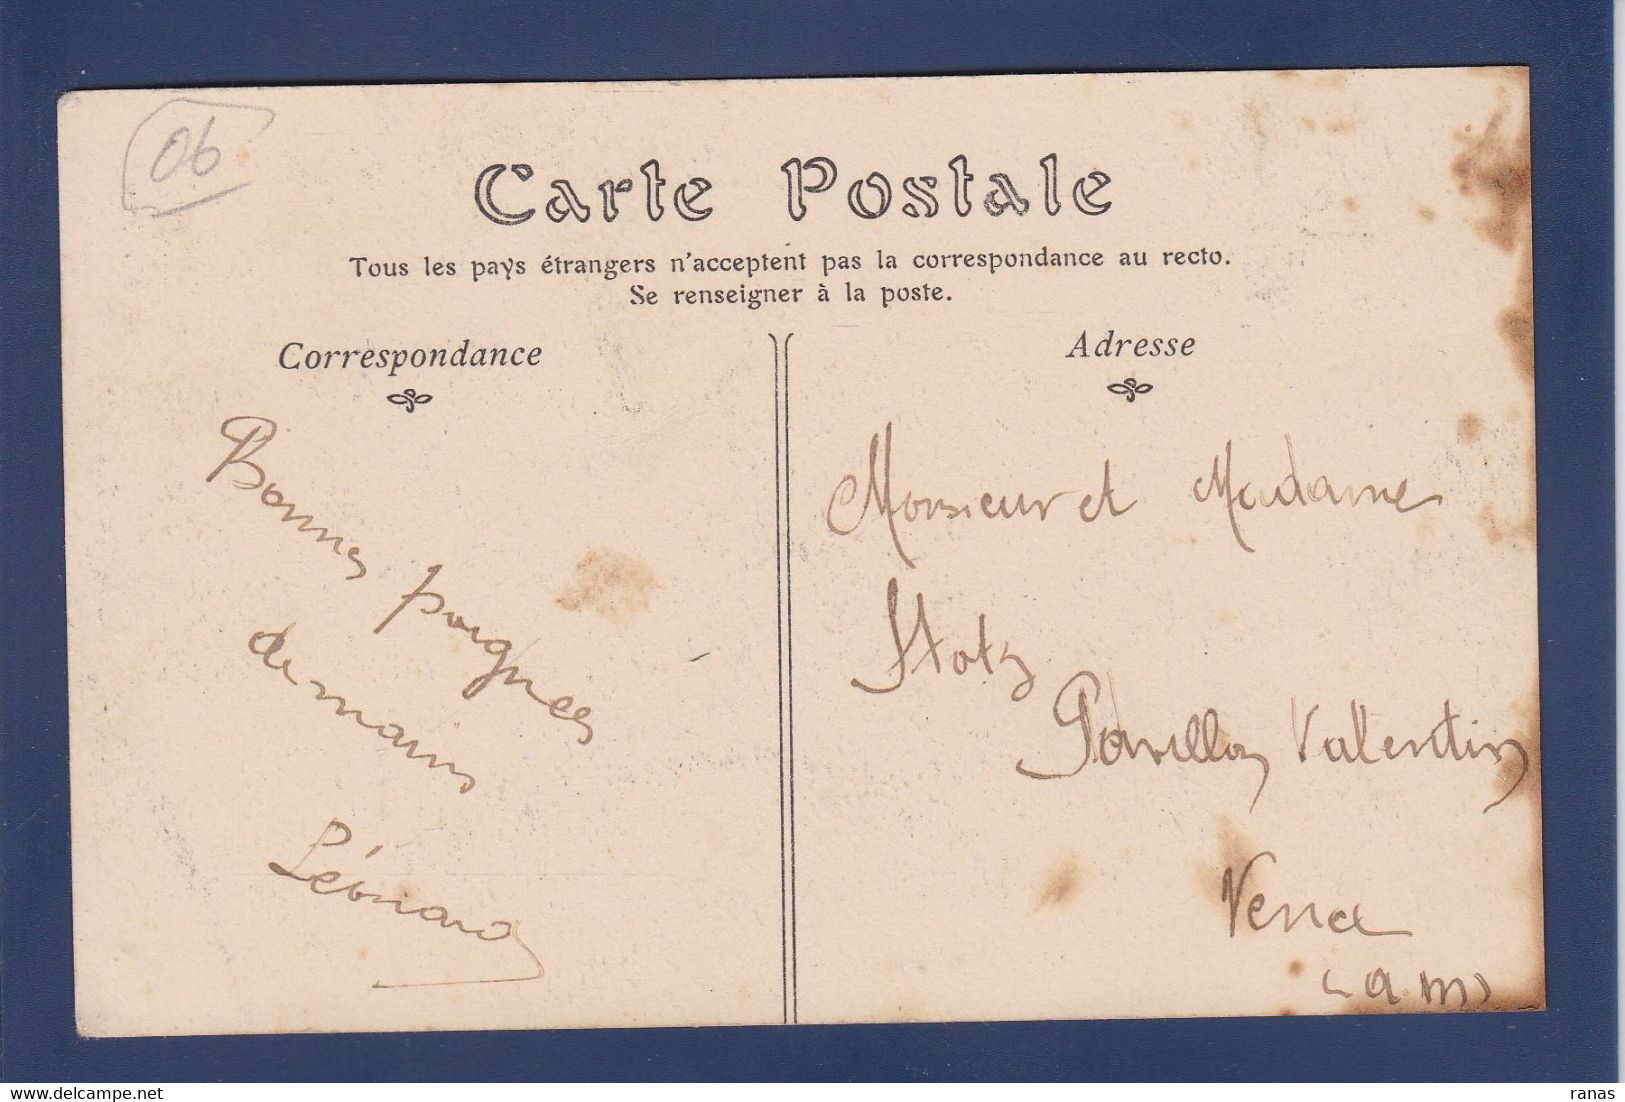 06
Carte Postale
Tous les pays étrangers n'acceptent pas la correspondance au recto.
Se renseigner à la poste.
Correspondance
Bonnes poignées
de mains
Léonard
Adresse
Monsieur et Madame
Stotz
Pavillon Valentin
Vence
(a.m)
ranas